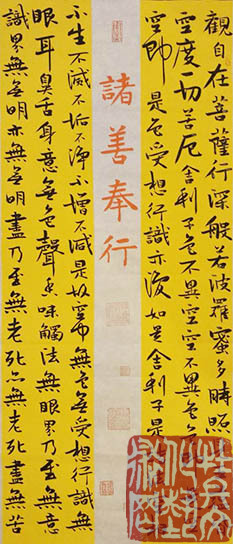 觀自在菩薩行深般若波羅蜜多時照
空度一切苦厄舍利子色不異空空不異色
空即是色受想行識亦復如是舍利子是
諸善奉行
不生不滅不垢不淨不增不減是故空中無色無受想行識無
眼耳鼻舌身意無色聲香味觸法無眼界乃至無意
識界無無明亦無無明盡乃至無老死亦無老死盡無苦